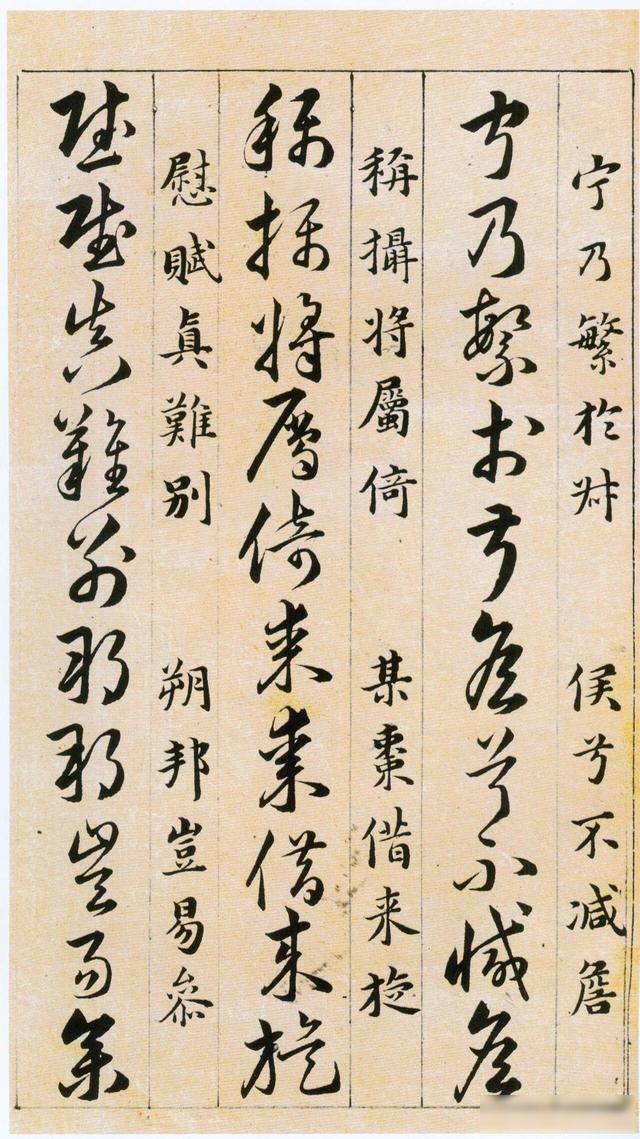 宁乃繁扵叔 侯兮不减詹
宁乃繁扵叔侯兮不减詹
稱攝将屬倚 某棗借来旋
稱攝将屬倚某棗借来旋
慰賦真難别 朔邦豈易叅
慰賦真難别朔邦豈易叅